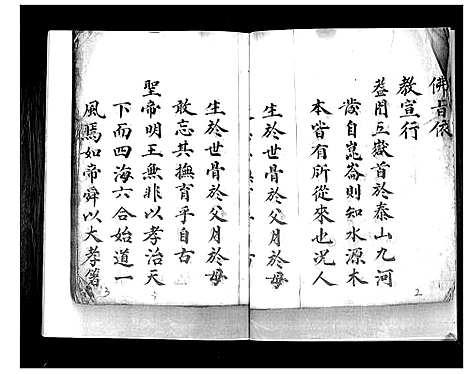 佛旨依
教宣行
蓋聞五嶽首於泰山九河
發自崑崙則知水源木
本皆有所從來也况人
生於世骨於父月於母
生於世骨於父月於母
敢忘其撫育乎自古
聖帝明王無非以孝治天
下而四海六合始道一
風焉如帝舜以大孝
2
3